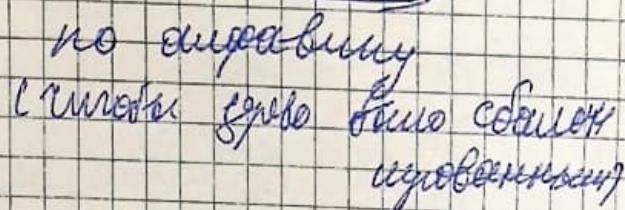 по алфавиту
(чтобы древо было сбалан
сированным)